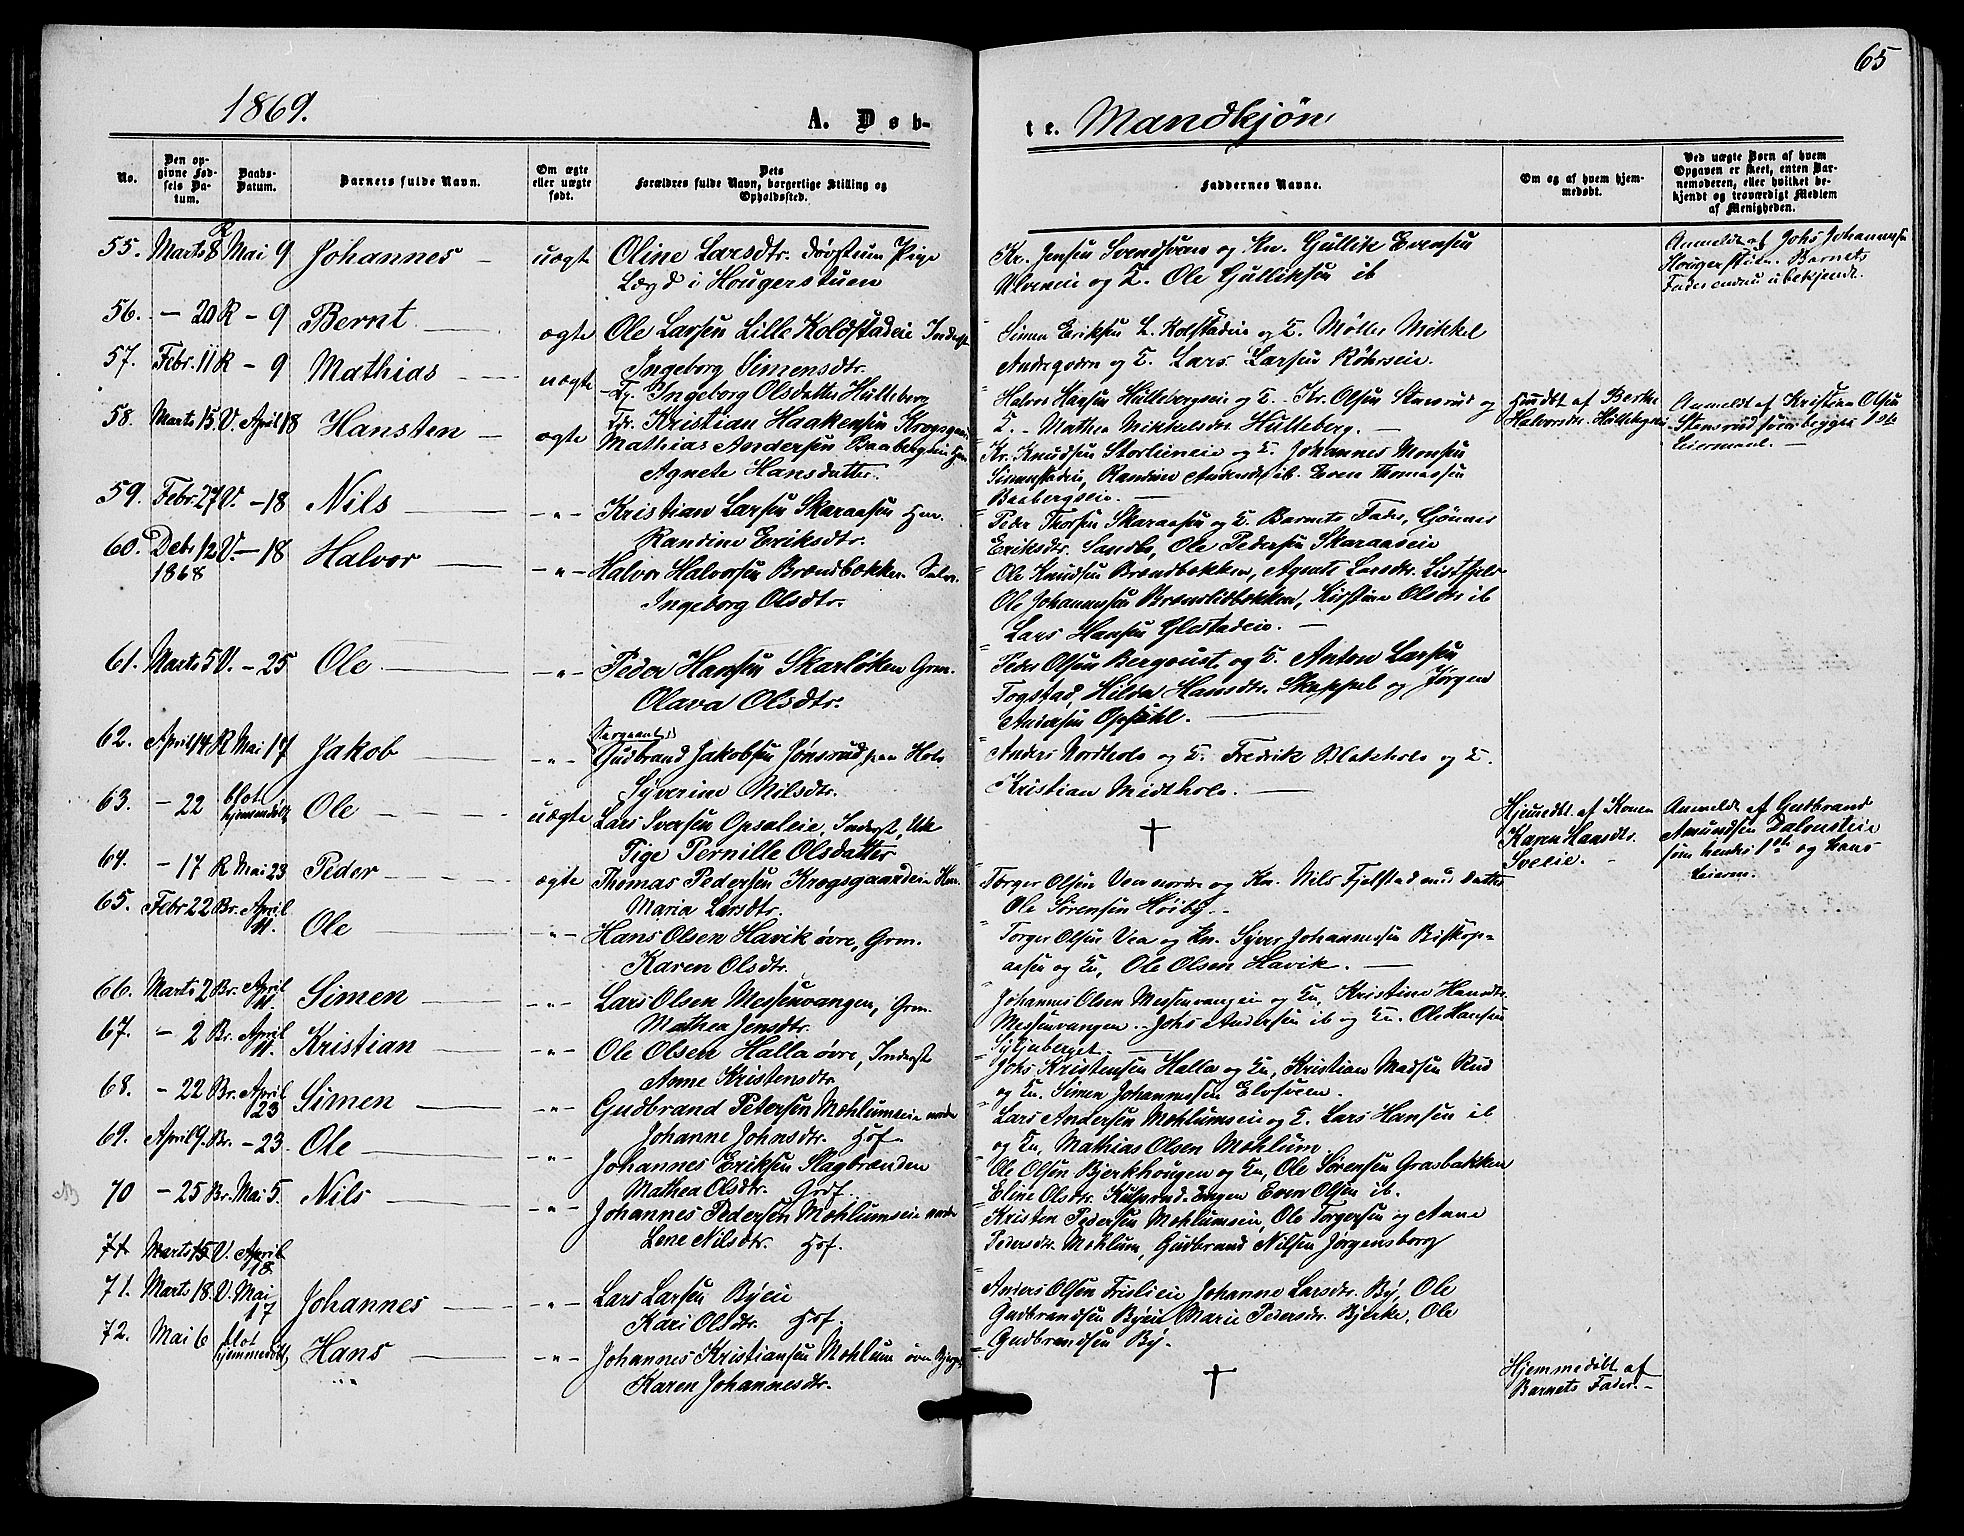 65
1869. A. Døb-
te. Mandkjøn
No.
Den op-
givne Fød-
sels Da-
tum.
Daabs-
Datum.
Barnets fulde Navn.
Om ægte
eller uægte
født.
Dets
Forældres fulde Navn, borgerlige Stilling og
Opholdssted.
Faddernes Navne.
Om og af hvem hjem-
medøbt.
Ved uægte Børn af hvem
Opgaven er skeet, enten Bar-
nemoderen, eller hvilket be-
kjendt og troværdigt Medlem
af Menigheden.
55. Marts 8 R Mai 9 Johannes - uægte Oline Larsdtr. Pige
Lægd i Hougerstuen
Kr. Jensen og Kn. Gullik Evensen
og K. Ole Gulliksen ib
Anmeldt af Johs Johannesen
Hougerstuen. Barnets
Fader endnu ubekjendt.
56. - 20 R - 9 Bernt ægte Ole Larsen Lille Koldstadeie Inderst
Ingeborg Simensdtr.
Simen Eriksen L. Kolstadeie og K. Møller Mikkel
og K. Lars Larsen
57. Febr. 11 R - 9 Mathias uægte Pg. Ingeborg Olsdatter Hulleberg
Kristian Haakensen
Halvor Hansen Hullebergseie og K. Kr. Olsen Stensrud og
K. - Mathea Mikkelsdtr Hulleberg. -
af Berthe
Halvorsdtr. Hullebergeie
Anmeldt af Kristian Olsen
Stensrud som begges 1ste
Leiermaal. -
58. Marts 15 V. April 18 Hansten - ægte Mathias Andersen Baabergseie Hm.
Agnete Hansdatter.
Kr. Knudsen og K. Johannes Monsen
Simenstadeie, Randine ib. Even Thomassen
Baabergseie. -
59. Febr. 27 V. - 18 Nils - " - Kristian Larsen Skaraasen Hm.
Randine Eriksdtr.
Peder Thorsen Skaraasen og K. Barnets Fader, Gunner
Eriksdtr. Sandbo, Ole Pedersen Skaraaseie
60. Debr 12 V. - 18 Halvor - " - Halvor Halvorsen Brændbækken Selv.
1868
Ingeborg Olsdtr.
Ole Knudsen Brændbækken, Agnete Larsdtr.
Ole Johannessen Brændlibækken, Kirstine Olsdtr ib
Lars Hansen Glestadeie. -
61. Marts 5 V. - 25 Ole - " - Peder Hansen Skarløken Grm.
Olava Olsdtr.
Peder Olsen Bergqvist og K. Anton Larsen
Togstad, Hilda Hansdtr. Skappel og Jørgen
Andersen Opsahl.
62. April 14 R Mai 17 Jakob - " - Sergeant
Gudbrand Jakobsen Jønsrud paa Hole
Syverine Nilsdtr.
Anders Nordhole og K. Fredrik og K.
Kristian Midthole. -
63. - 22 blot
hjemmedøbt
Ole uægte Lars Iversen Opsaleie, Inderst, Uk
Pige Pernille Olsdatter
†
Hjemedbt. af Konen
Karen Hansdtr.
Sveeie.
Anmeldt af Gudbrand
Amundsen Dalensteie
som hendes 1ste og hans
Leierm.
64. - 17 R Mai 23 Peder ægte Thomas Pedersen Krogsgaardeie Hm.
Maria Larsdtr.
Torger Olsen Vea nordre og Kn. Nils Fjelstad med Datter
Ole Sørensen Høiby. -
65. Febr 22 Br. April
11.
Ole - " - Hans Olsen Havik øvre, Grm.
Karen Olsdtr.
Torger Olsen Vea og Kn. Syver Johannesen Biskop-
aasen og Kn, Ole Olsen Havik. -
66. Marts 2 Br. April
11.
Simen - " - Lars Olsen Messenvangen, Grm.
Mathea Jensdtr.
Johannes Olsen Messenvangen og Kn, Kristine Hansdtr.
Messenvangen. - Johs Andersen ib og Kn. Ole Hansen
67. - 2 Br. April
11.
Kristian - " - Ole Olsen Halla øvre, Inderst
Anne Kristensdtr.
Johs Kristensen Halla og Kn, Kristian Madsen Rud
og Kn. Simen Johannessen Elvsveen.
68. - 22 Br. April
23
Simen - " - Gudbrand Petersen Mohlumseie nordre
Johanne Johnsdtr. Hsf.
Lars Andersen Mohlumseie og K. Lars Hansen ib
og Kn, Mathias Olsen Mohlum.
69. April 9. Br. - 23. Ole - " - Johannes Eriksen Slagbrænden
Mathea Olsdtr. Grdf.
Ole Olsen Bjerkhougen og Kn, Ole Sørensen Grasbakken
Eline Olsdtr. Kulsrud-Engen Even Olsen ib.
70 - 25 Br. Mai 5. Nils - " - Johannes Pedersen Mohlumseie nordre
Lene Nilsdtr. Hsf.
Kristen Pedersen Mohlumseie, Ole Torgersen og Anne
Pedersdtr. Mohlum, Gudbrand Nilsen Jørgensborg
71 Marts 15 V. April
18
71. Marts 18. V. Mai
17
Johannes - " - Lars Larsen Byeie
Kari Olsdtr. Hsf.
Anders Olsen Johanne Larsdtr. By, Ole
Gudbrandsen Byeie Marie Pedersdtr. Bjerke, Ole
Gudbrandsen By.
72. Mai 6 blot
hjemmedøbt
Hans - " - Johannes Kristiansen Mohlum øvre
Karen Johannesdtr.
†
Hjemmedøbt af
Barnets Fader. -